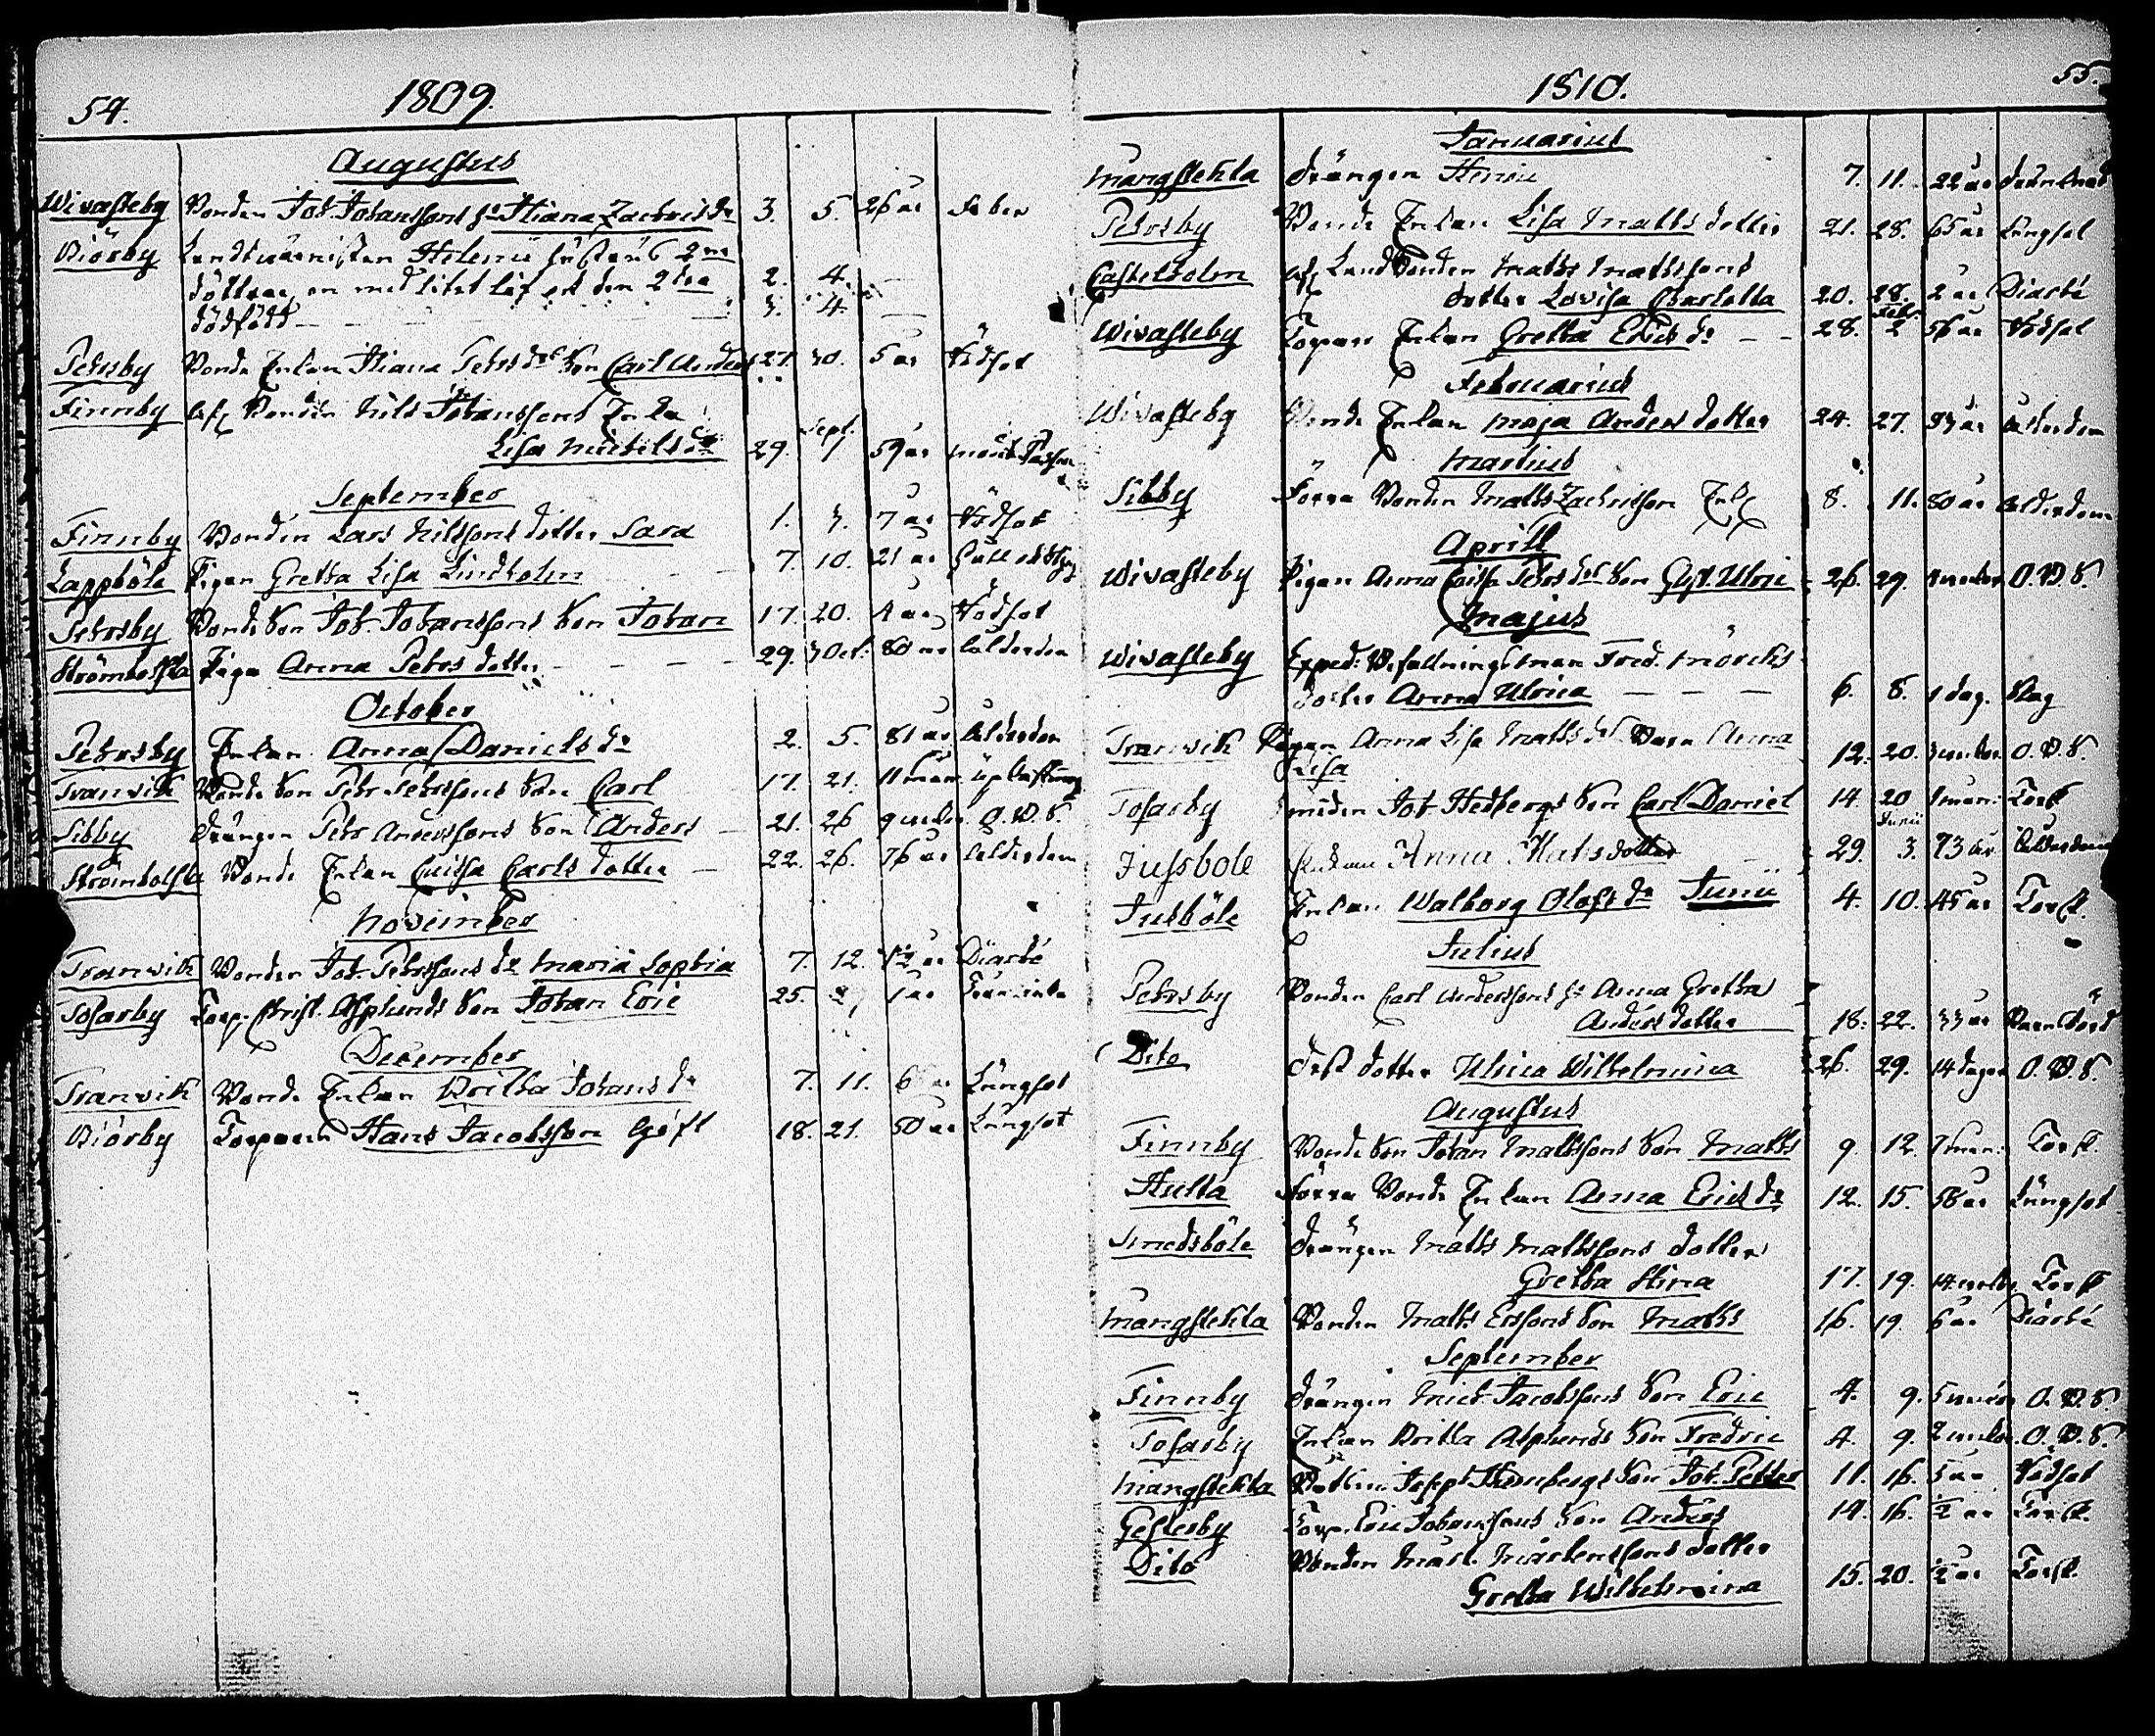 54. 1809.
Augustus
Wivasteby Bonden Joh. Johanssons h:u Stiana Zachris dr 3. 5. 26 år Feber
Biörby Landtuarnisten Helenii hustrus 2ne
döttrar, en med litet lif och den 2dra 2. 4. —
dödfödd — — 3. 4. —
Pehrsby Bonde Enkan Stiana Pehrs drs Son Carl Anders 27. 30. 5 år Rödsot
Finnby Afl. Bonden Nils Johanssons Enka
Sept.
Lisa Michels dr 29. 1 59 år
September
Finnby Bonden Lars Nilssons dotter Sara 1. 3. 7 år Rödsot
Lappböle Pigan Gretha Lisa Lindholm 7. 10. 21 år
Pehrsby Bonde Son Joh. Johanssons Son Johan 17. 20. 4 år Rödsot
Strömbolsta Piga Anna Pehrs dotter — — — 29. 3 Oct. 80 år Ålderdom
October
Pehrsby Enkan Anna Daniels dr 2. 5. 81 år Ålderdom
Tranvik Bonde Son Pehr Pehrssons Son Carl 17. 21. 11 mån.
Sibby Drängen Pehr Anderssons Son Anders — 21. 26 9 veckor O.B.S.
Strömbolsta Bonde Enkan Caisa Carls dotter — 22. 26. 76 år Ålderdom
November
Tranvik Bonden Joh. Pehrssons dr Maria Sophia 7. 12. 1½ år Diarhé
Tosarby Torp. Christ. Asplunds Son Johan Eric 25. 1 år
December
Tranvik Bonde Enkan Britha Johans dr 7. 11. 6 år Lungsot
Biörby Torparen Hans Jacobsson Gift 18. 21. 50 år Lungsot
1810. 55.
Januarius
Mångstekta Drängen Henric 7. 11. 22 år drunknad
Pehrsby Bonde Enkan Lisa Matts dotter 21. 28. 65 år Lungsot
Castelholm Afl. Landbonden Matts Mattssons
dotter Lovisa Charlotta 20. 28. 2 år Diarhé
Febr.
Wivasteby Torpare Enkan Gretha Erics dr — — 28. 2 56 år Rödsot
Februarius
Wivasteby Bonde Enkan Maja Anders dotter 24. 27. 83 år Ålderdom
Martius
Sibby Förra Bonden Matts Zachrisson Enkl. 8. 11. 80 år Ålderdom
Aprill
Wivasteby Pigan Anna Caisa Pehrs drs Son Gust. Ulric 26. 29. veckor O.B.S.
Majus
Wivasteby Exped: Befallningsman Fred. Mörcks
dotter Anna Ulrica — — — 6. 8. 1 dag. Slag
Tranvik Pigan Anna Lisa Matts drs Barn Anna
Lisa 12. 20. 3 veckor O.B.S.
Tosarby Smeden Joh. Hedbergs Son Carl Daniel 14 20 mån: Torsk
Junii
Jussbole Anna Matsdotter — 29 3. 73 år Ålderdom
Jusböle Enkan Walborg Olofs dr Junii 4. 10. 45 år Torsk.
Julius
Pehrsby Bonden Carl Anderssons h:u Anna Gretha
Anders dotter 18. 22. 33 år Barnsbörd
Dito dess dotter Ulrica Wilhelmina 26. 29. 14 dagar O.B.S.
Augustus
Finnby Bonde Son Johan Mattssons Son Matts 9. 12. 7 mån: Torsk.
Hulta Förra Bonde Enkan Anna Erics dr 12. 15. 58 år Lungsot
Smedsböle Drängen Matts Mattssons dotter
Gretha Stina 17. 19. 14 veckor Torsk
Mångstekta Bonden Matts Erssons Son Matts 16. 19. 6 år Diarhé
September
Finnby Drängen Mich. Jacobssons Son Eric 4. 9. 5 veckor O.B.S.
Tosarby Enkan Britta Asplunds Son Fredric 4. 9. 2 veckor. O.B.S.
Mångstekta Joseph Son Joh. Petter 11. 16. 5 år Rödsot
Gesterby Torp. Eric Johanssons Son Anders 14. 16. ½ år Torsk.
Dito Bonden Mårt. Mårtenssons dotter
Gretha Wilhelmina 15. 20. ½ år Torsk.